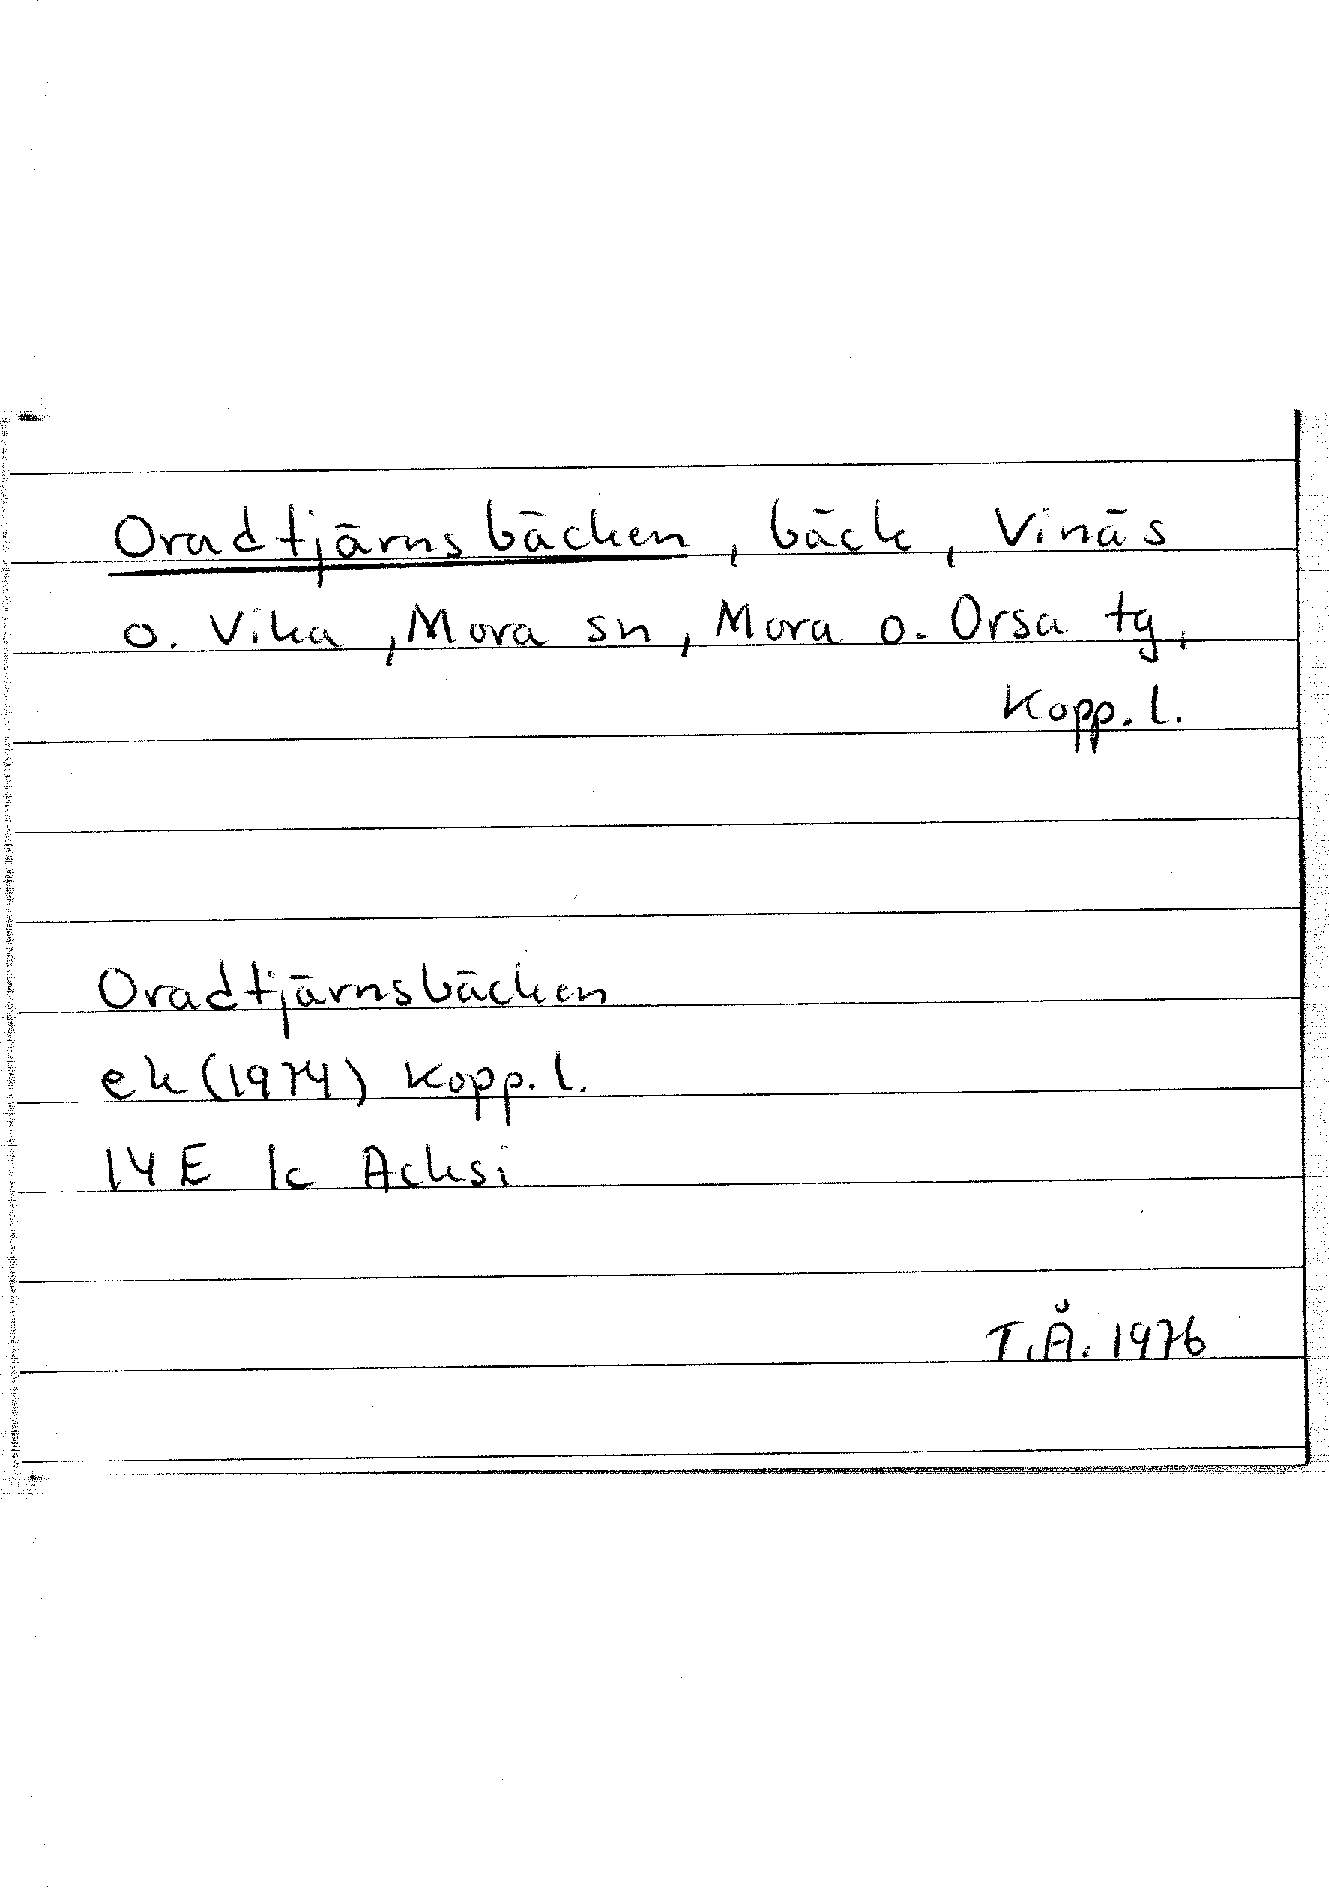 Oradtjärnsbäcken, bäck, Vinäs
o. Vika, Mora sn, Mora o. Orsa tg,
Kopp. l.
Oradtjärnsbäcken
ek (1974) Kopp. l.
14 E 1c Acksi
T.Å. 1976